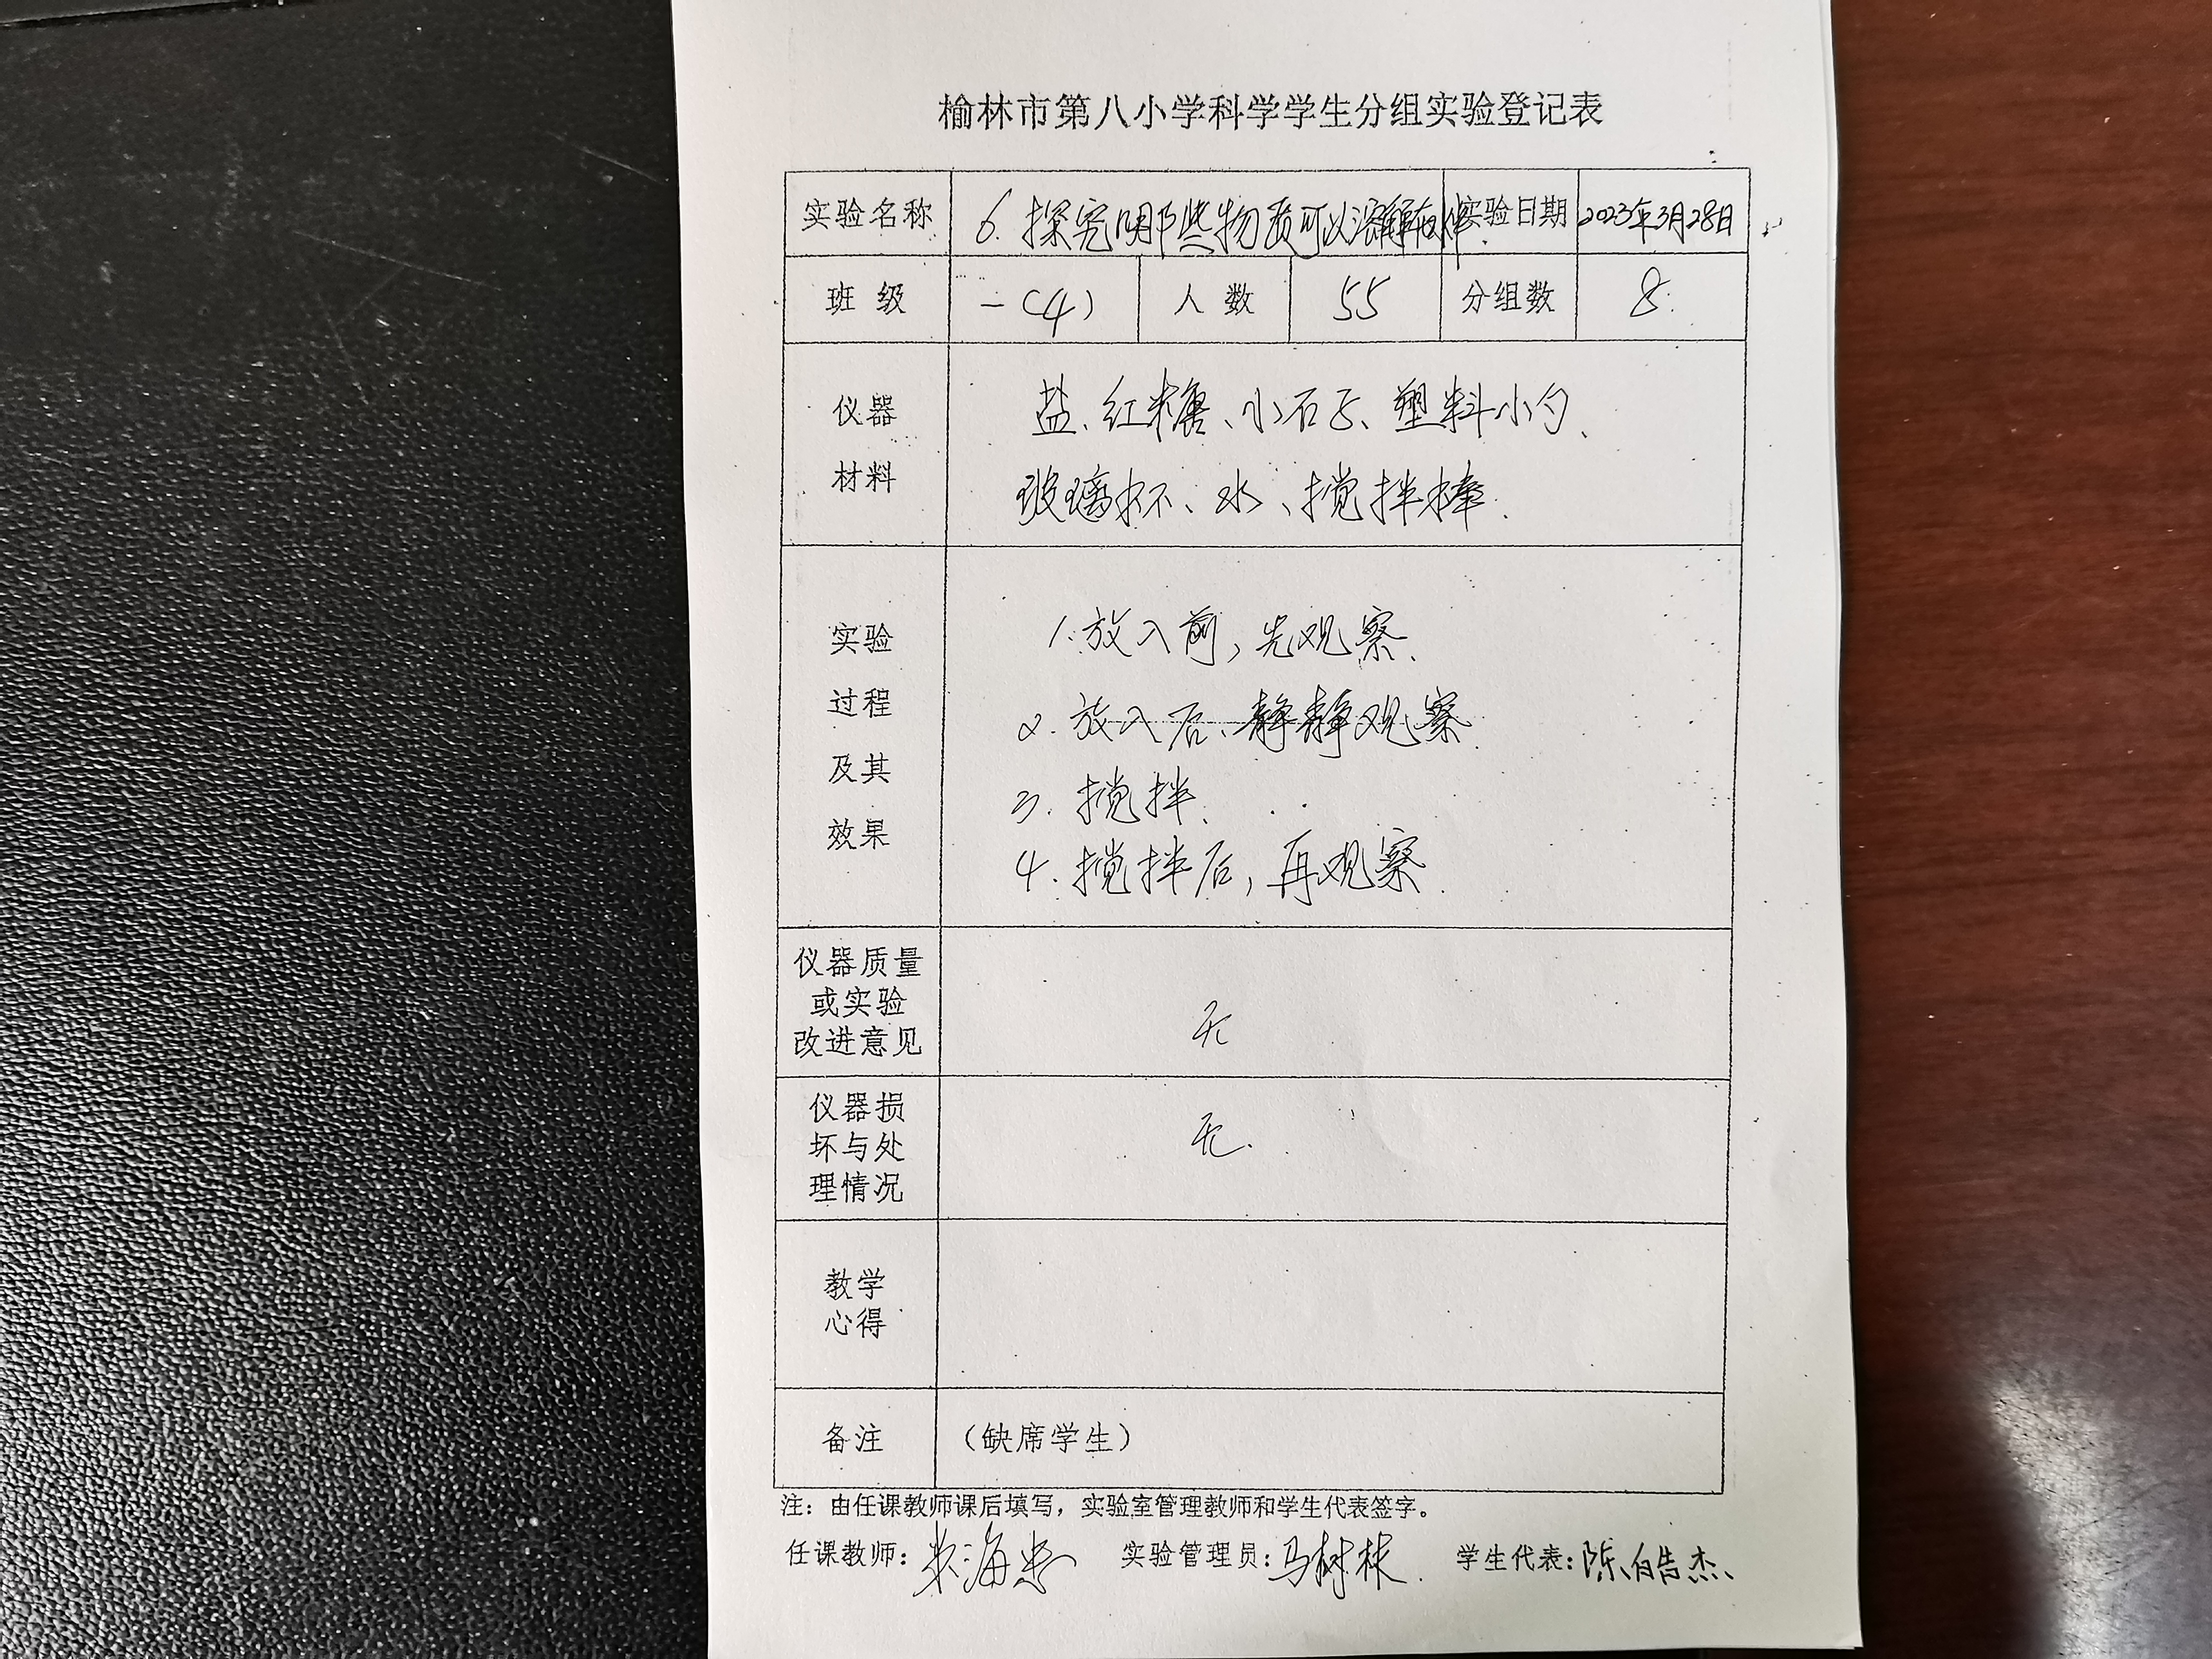 榆林市第八小学科学学生分组实验登记表
实验名称 6.探究哪些物质可以溶解在水 实验日期 2023年3月28日
班 级 一(4) 人 数 55 分组数 8.
仪器 盐、红糖、小石子、塑料小勺、
材料 玻璃杯、水、搅拌棒.
实验 1.放入前,先观察.
过程 2.放入后、静静观察.
及其 3.搅拌.
效果 4.搅拌后,再观察.
仪器质量
或实验 无
改进意见
仪器损
坏与处 无.
理情况
教学
心得
备注 (缺席学生)
注:由任课教师课后填写,实验室管理教师和学生代表签字。
任课教师: 实验管理员:马树林. 学生代表:陈皓杰